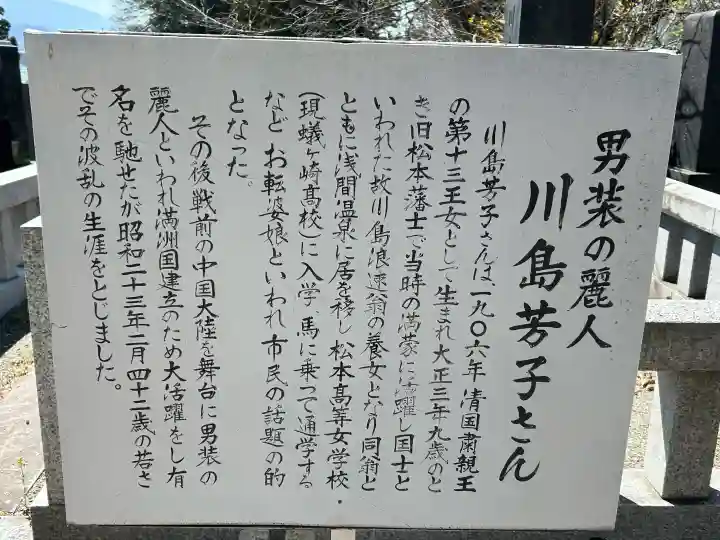 男装の麗人
川島芳子さん
川島芳子さんは、一九〇六年清国粛親王
の第十三王女として生まれ大正三年九歳のと
き旧松本藩士で当時の満蒙に活躍し国士と
いわれた故川島浪速翁の養女となり同翁と
ともに浅間温泉に居を移し松本高等女学校
(現蟻ヶ崎高校)に入学 馬に乗って通学する
など お転婆娘といわれ市民の話題の的
となった。
その後戦前の中国大陸を舞台に男装の
麗人といわれ満洲国建立のため大活躍をし有
名を馳せたが昭和二十三年二月四十二歳の若さ
でその波乱の生涯をとじました。